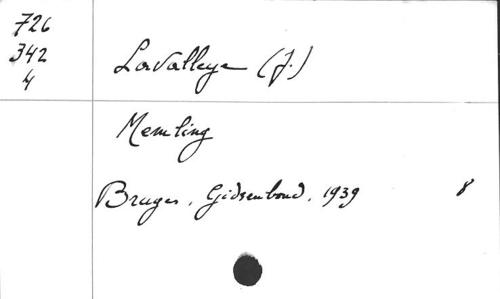 726
342
4
Lavalleye (J.)
Memling
Bruges, Gidsenbond, 1939 8